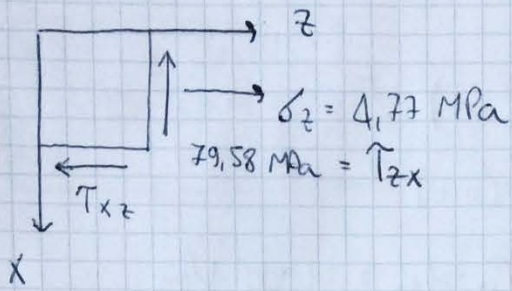 z
σz = 4,77 MPa
79,58 MPa = τzx
τxz
x